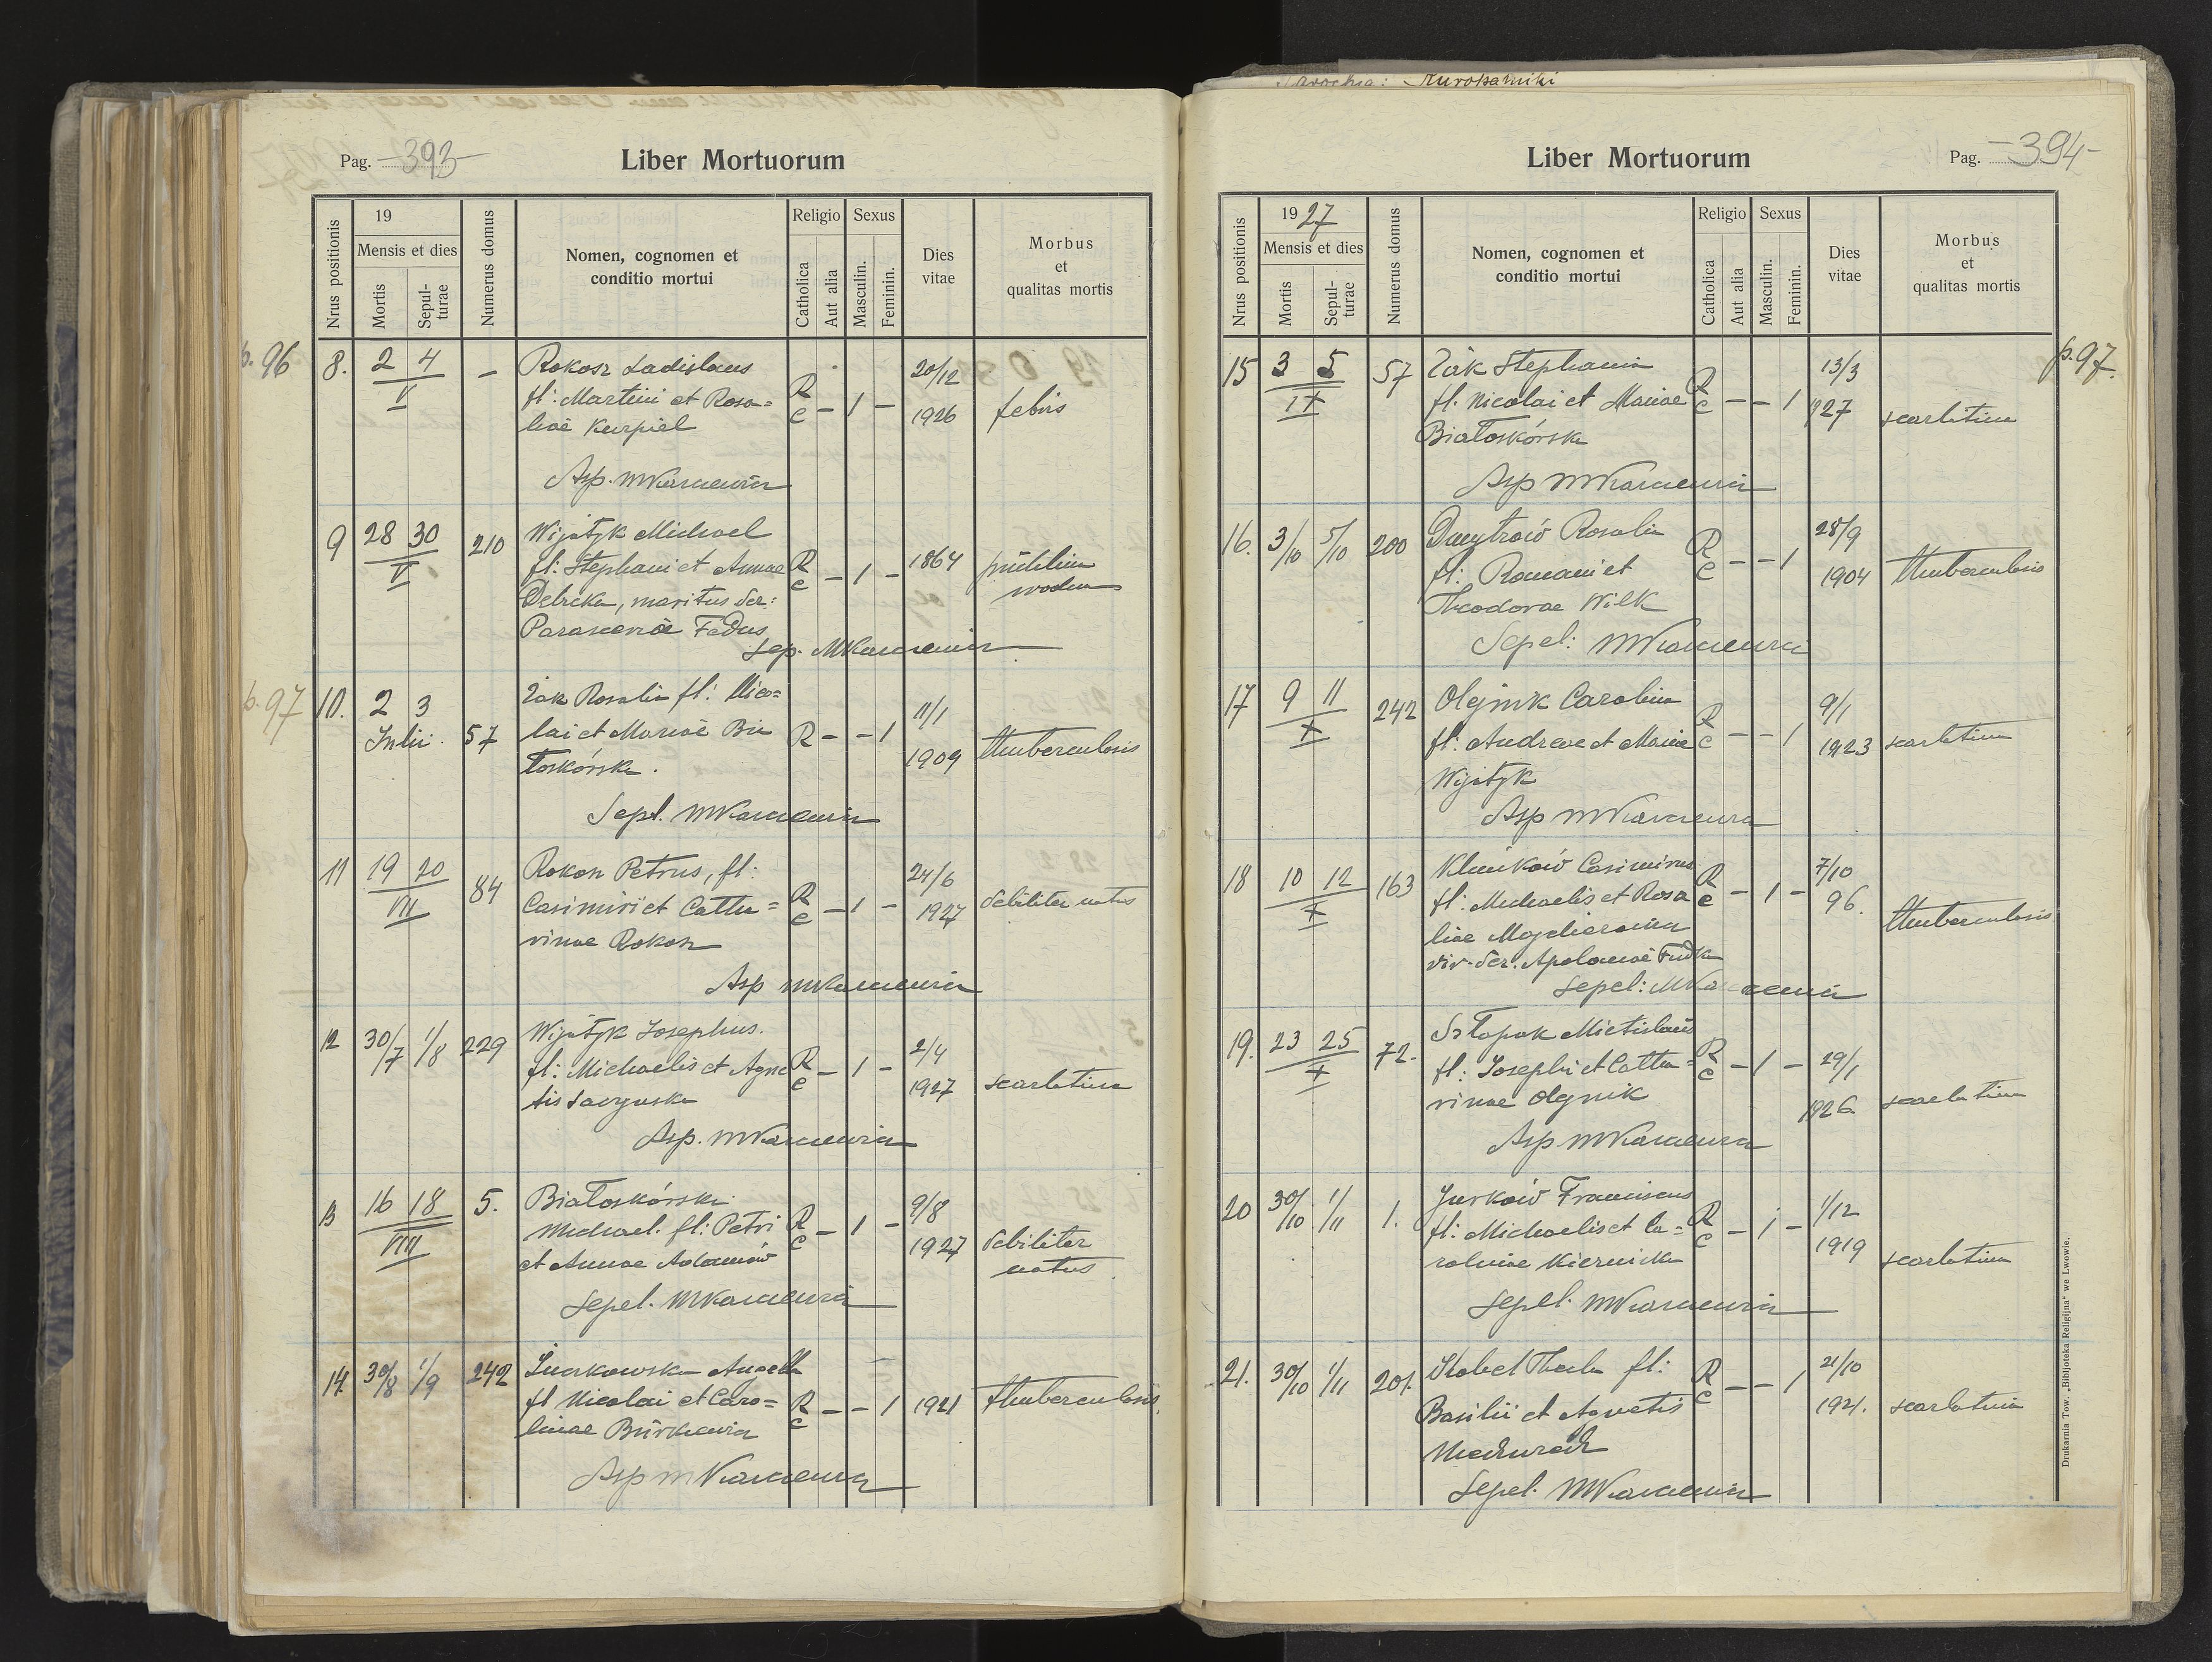 Pag. -393-
Liber Mortuorum
Nrus positionis
19
Mensis et dies
Mortis
Sepulturae
Numerus domus
Nomen, cognomen et
conditio mortui
Religio
Catholica
Aut alia
Sexus
Masculin.
Feminin.
Dies
vitae
Morbus
et
qualitas mortis
p. 96
8. 2 4 V – Rokosz Ladislaus
fl: Martini et Rosa=
liae Kurpiel
R c – 1 –
20/12
1926
febris
Asp.
9 28 30 V 210 Wijatyk Michael
fl: Stephani et Annae
maritus der:
Parasceviae Fedus
R c – 1 –
1864
Sep.
p. 97
10. 2 3 Julii 57 Żak Rosalia fl: Nico=
lai et Mariae Bia
łoskórska.
R – – 1
11/1
1909
thuberculosis
Sepl.
11 19 20 VII 84 Rokosz Petrus, fl:
Casimiri et Catha=
rinae Rokosz
R c – 1 –
24/6
1927
debiliter natus
Asp
12 30/7 1/8 229 Wijatyk Josephus.
fl: Michaelis et Agne
tis
R c – 1 –
2/4
1927
scarlatina
Asp.
13 16 18 VIII 5. Białoskórski
Michael. fl: Petri
et Annae Adamów
R c – 1 –
9/8
1927
debiliter
natus
Sepel.
14. 30/8 1/9 242 Angela
fl Nicolai et Caro=
linae
R c – – 1
1921
thuberculosis.
Asp
Parochia: Kurokamiki
Liber Mortuorum
Pag. -394-
Nrus positionis
1927
Mensis et dies
Mortis
Sepulturae
Numerus domus
Nomen, cognomen et
conditio mortui
Religio
Catholica
Aut alia
Sexus
Masculin.
Feminin.
Dies
vitae
Morbus
et
qualitas mortis
p. 97.
15 3 5 IX 57 Żak Stephania
fl. Nicolai et Mariae
Białoskórska
R c – – 1
13/3
927
scarlatina
Asp
16. 3/10 5/10 200 Dmytrów Rosalia
fl: Romani et
Theodorae Wilk
R c – – 1
28/9
1904
thuberculosis
Sepel:
17 9 11 X 242 Olejnik Carolina
fl: Andreae et Mariae
Wijatyk
R c – – 1
9/1
1923
scarlatina
Asp
18 10 12 X 163 Klimków Casimirus
fl: Michaelis et Rosa
liae
vir der. Apoloniae Fudk
R c – 1 –
7/10
96.
thuberculosis
Sepel:
19. 23 25 X 72. Szłapak Mietislaus
fl: Josephi et Catha=
rinae Olejnik
R c – 1 –
29/1
1926
scarlatina
Asp
20 30/10 1/11 1. Jurków Franciscus
fl: Michaelis et Ca=
rolinae Kiernicka
R c – 1 –
1/12
1919
scarlatina
Sepel.
21. 30/10 1/11 201. Thecla fl:
Basilii et Agnetis
R c – – 1
21/10
1921.
scarlatina
Sepel.
Drukarnia Tow. „Bibljoteka Religijna" we Lwowie.